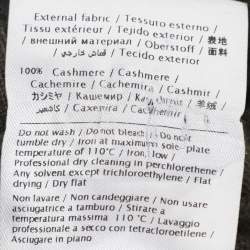 External fabric / Tessuto esterno /
Tissu extérieur / Tejido exterior / 表地
/ внешний материал / Oberstoff / 面料
/ قماش خارجي / Tecido exterior
100% Cashmere / Cashmere /
Cachemire / Cachemira / Cashmir /
カシミヤ / Кашемир / Kaschmir / 羊绒
/ كشمير / Caxemira / Cachemire
Do not wash / Do not bleach / Do not
tumble dry / Iron at maximum sole-plate
temperature of 110°C / Iron, low /
Professional dry cleaning in perchlorethene /
Any solvent except trichloroethylene / Flat
drying / Dry flat
Non lavare / Non candeggiare / Non usare
asciugatrice a tamburo / Stirare a
temperatura massima 110°C / Lavaggio
professionale a secco con tetracloroetilene /
Asciugare in piano